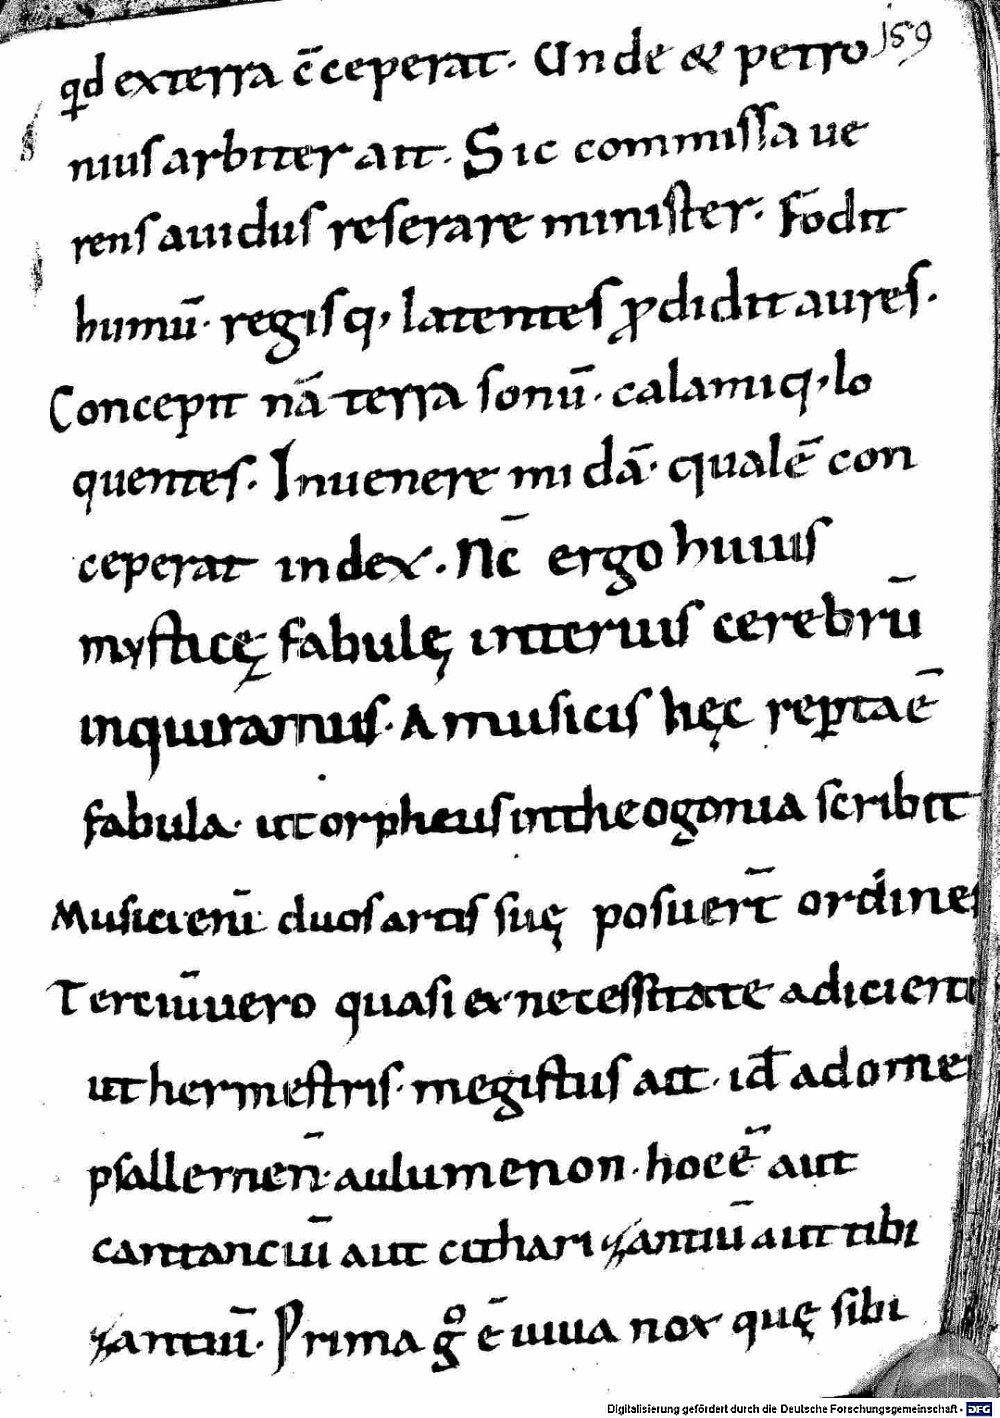 159
qd exterra c̄ceperat. Unde & petro
niusarbiter ait. Sic commissa ue
rens auidus reserare minister. Fōdit
humū. regisq, latentes ꝓdidit aures.
Concepit nā terra sonū. calamiq, lo
quentes. Inuenere midā. qualē con
ceperat index. Nc̄ ergo huius
mysticę fabulę interius cerebrū
inquiramus. A musicis hęc reꝑta ē
fabula. ut orpheus intheogonia scribit
Musici eni̅ duos artis suę posuer̄t ordines
Terciū uero quasi ex necessitate adicient
ut hermestris. megistus ait. id̄ adome
psallemen̄. aulumenon. hoc ē aut
cantanciū aut cithari zantiū aut tibi
zantiū. Prima gͦ ē uiua uox quę sibi
Digitalisierung gefördert durch die Deutsche Forschungsgemeinschaft - DFG